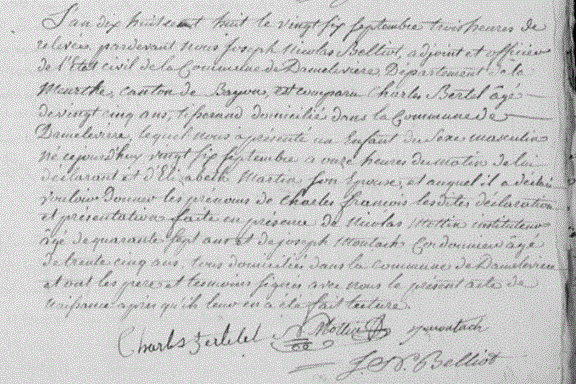 L'an dix huit cent huit le vingt six septembre trois heures de
relevée, pardevant nous Joseph Nicolas Belliot, adjoint et officier
de l'Etat civil de la Commune de Damelevière, Département de la
Meurthe, canton de Bayon, est comparu Charles Bertel âgé
de vingt cinq ans, tisserand domicilié dans la Commune de
Damelevière, lequel nous a présenté un Enfant du Sexe masculin
né cejourd'huy vingt six septembre a onze heures du matin de lui
déclarant et d'Elizabeth Martin son Epouse, et auquel il a déclaré
vouloir donner les prénoms de Charles françois lesdites déclaration
et présentation faite en présence de Nicolas Mottin instituteur
âgé de quarante sept ans et de joseph Moutach Cordonnier âgé
de trente cinq ans, tous domiciliés dans la commune de Damelevière
et ont les pere et temoins signés avec nous le présent acte de
naissance après qu'il leur en a été fait lecture.
Charles N. Mottin jmoutach
J. N. Belliot